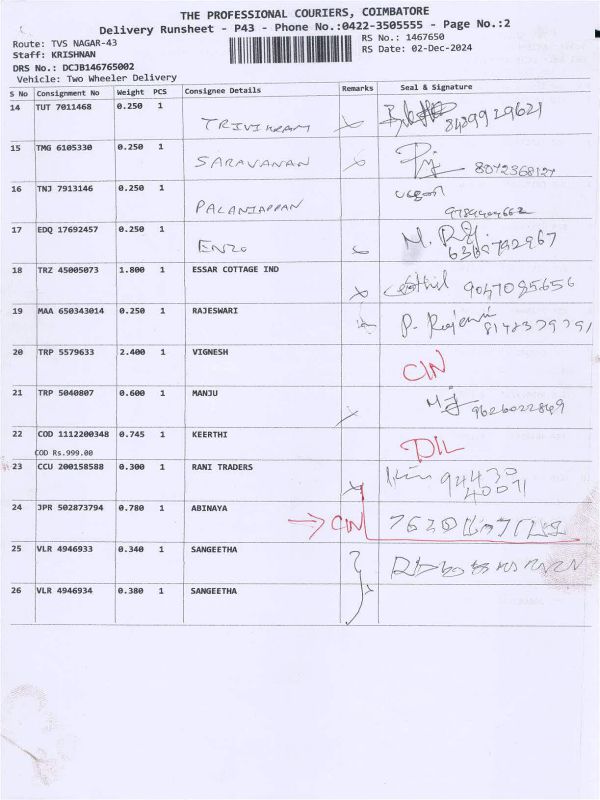 THE PROFESSIONAL COURIERS, COIMBATORE
Delivery Runsheet - P43 - Phone No.:0422-3505555 - Page No.:2
Route: TVS NAGAR-43
RS No.: 1467650
Staff: KRISHNAN
RS Date: 02-Dec-2024
DRS No.: DCJB146765002
Vehicle: Two Wheeler Delivery
S No Consignment No Weight PCS Consignee Details Remarks Seal & Signature
14 TUT 7011468 0.250 1 TRIVIKRAM 8429929621
15 TMG 6105330 0.250 1 SARAVANAN 8072368127
16 TNJ 7913146 0.250 1 PALANIAPPAN
17 EDQ 17692457 0.250 1 ENZO 6380792967
18 TRZ 45005073 1.800 1 ESSAR COTTAGE IND 9047085656
19 MAA 650343014 0.250 1 RAJESWARI
20 TRP 5579633 2.400 1 VIGNESH CIN
21 TRP 5040807 0.600 1 MANJU 9626022849
22 COD 1112200348 0.745 1 KEERTHI DIL
COD Rs.999.00
23 CCU 200158588 0.300 1 RANI TRADERS 94430
40071
24 JPR 502873794 0.780 1 ABINAYA CIN
25 VLR 4946933 0.340 1 SANGEETHA
26 VLR 4946934 0.380 1 SANGEETHA